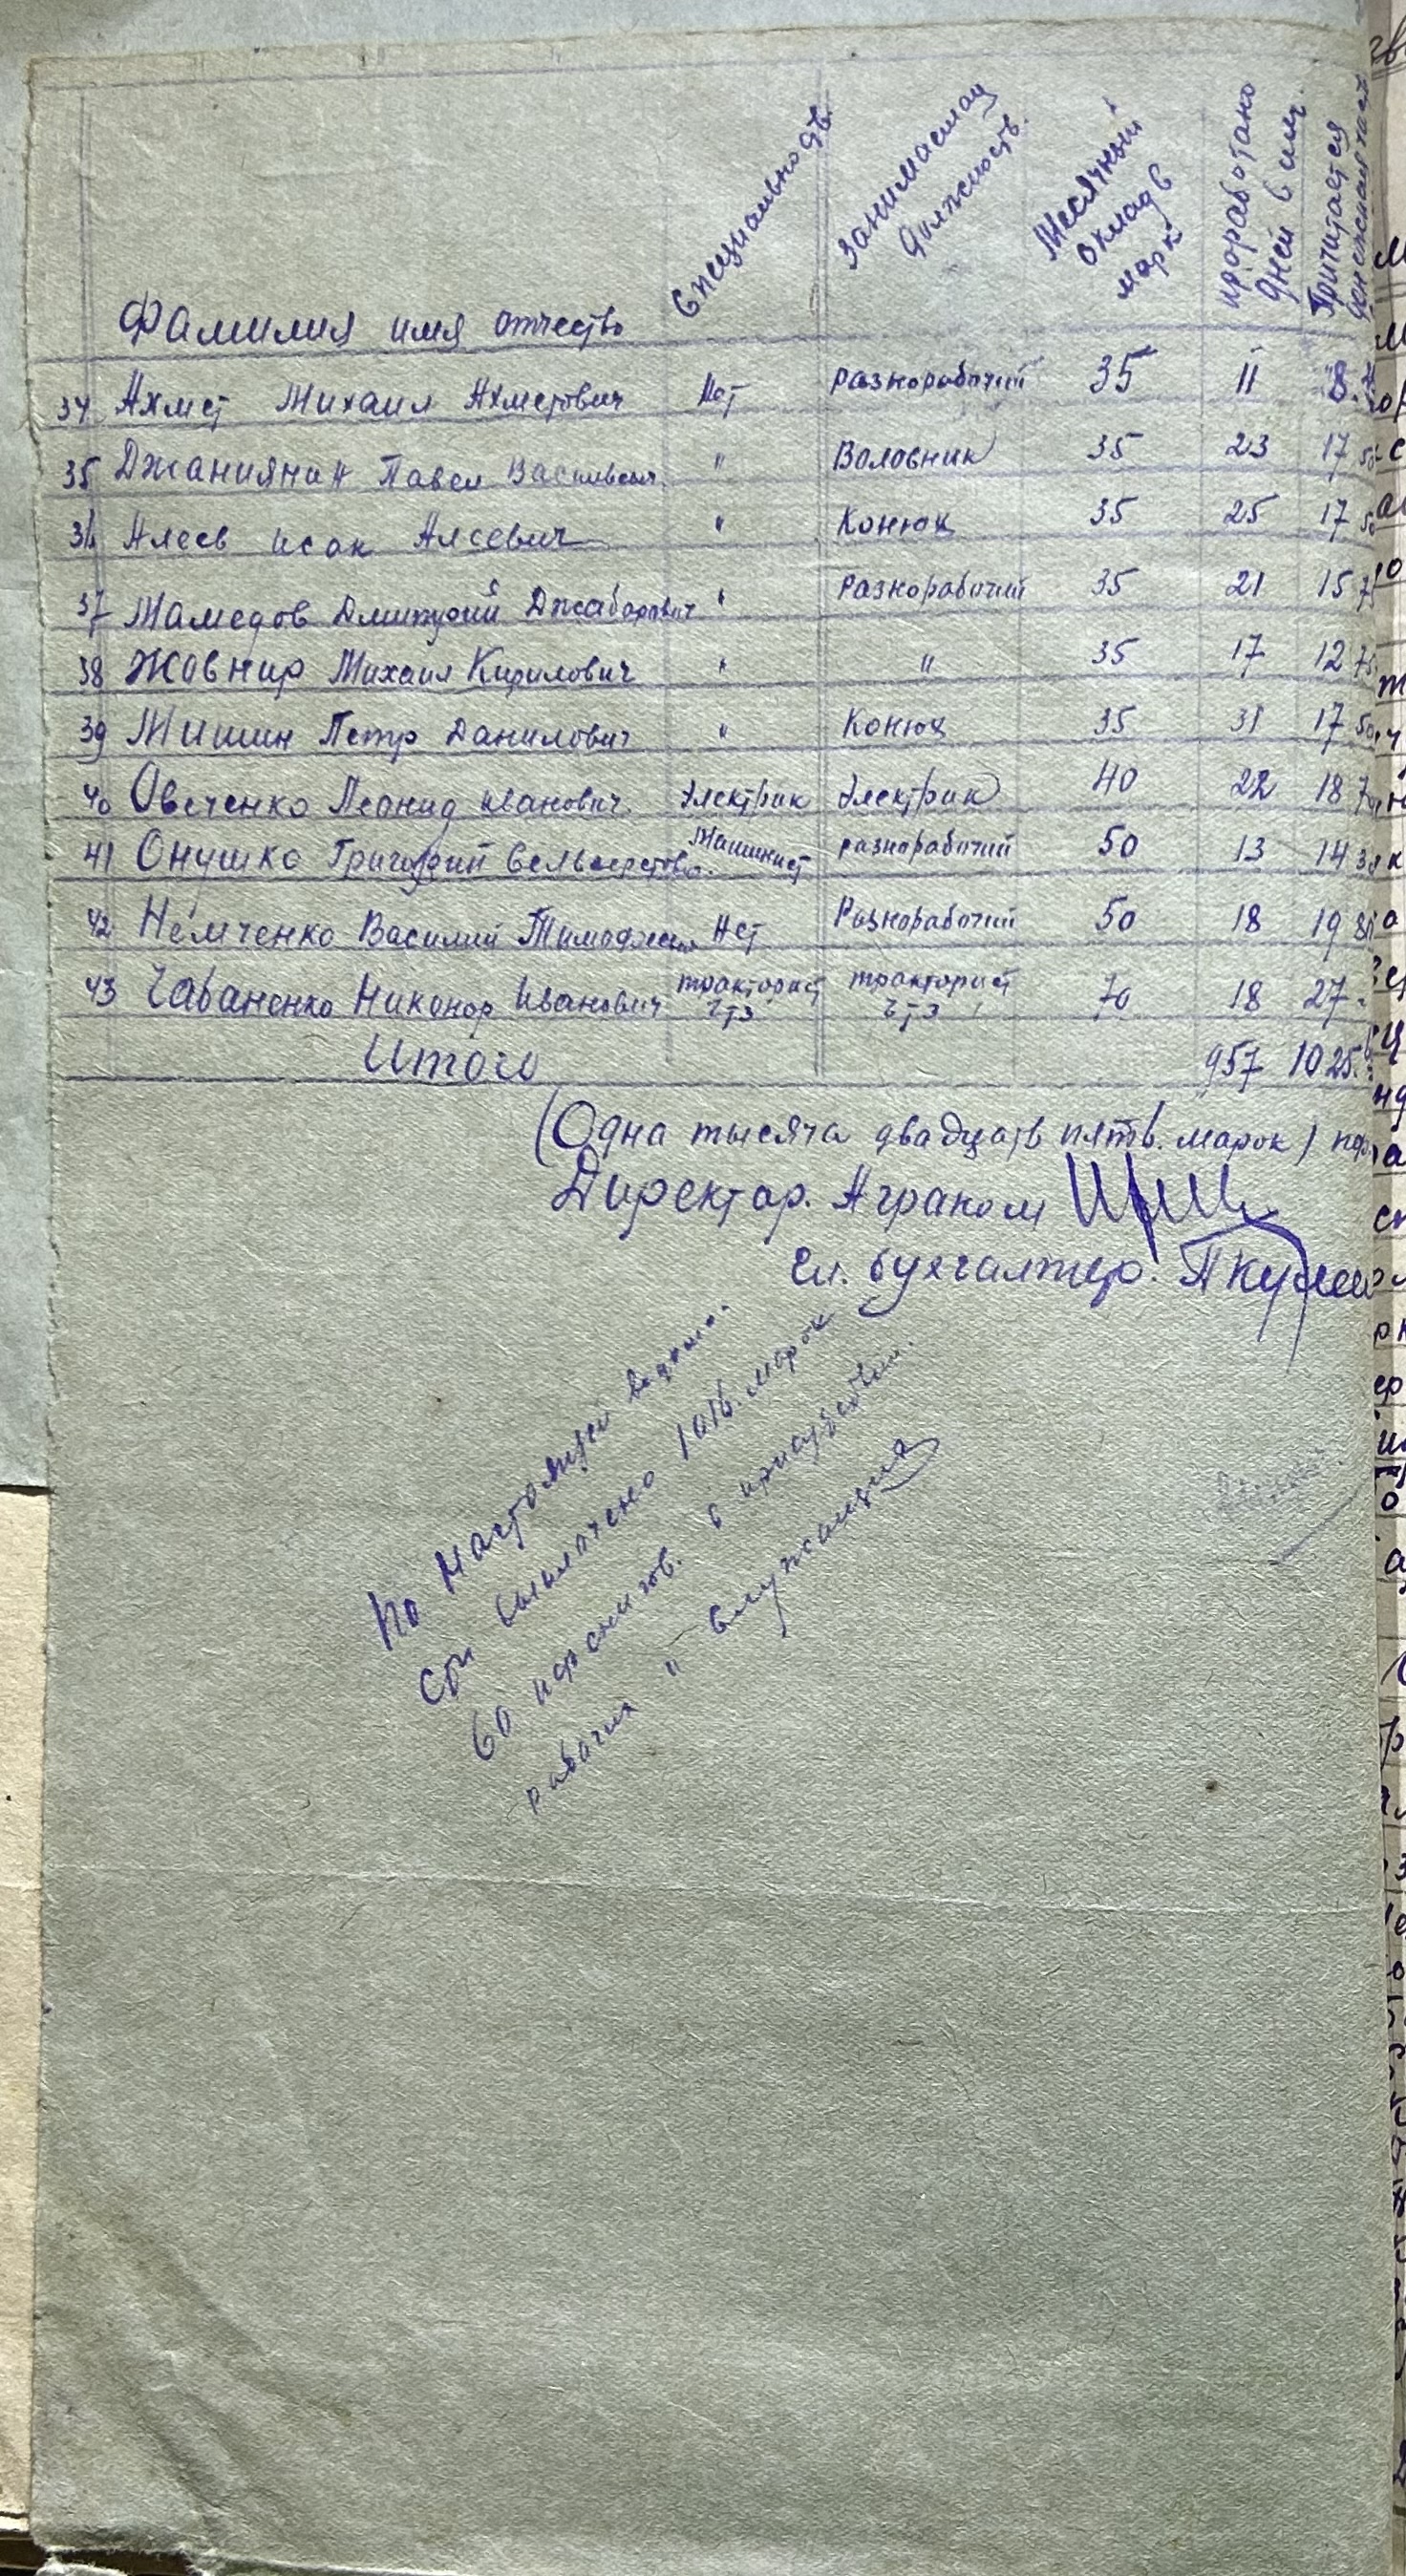 Фамилия имя отчество Специальность. Занимаемая должность. Месячный оклад в марк проработано дней в им. Причитается денежная часть
34 Ахмет Михаил Ахметович Нет разнорабочий 35 11 8.
35 Джаниянин Павел Васильевич. " Воловник 35 23 17 50
36 Алеев Исак Алеевич " Конюх 35 25 17 50
37 Мамедов Дмитрий Джабарович " Разнорабочий 35 21 15 75
38 Жовнир Михаил Кирилович " " 35 17 12 75
39 Мишин Петр Данилович " Конюх 35 31 17 50
40 Овеченко Леонид Иванович. Электрик Электрик 40 22 18 70
41 Онушко Григорий Машинист разнорабочий 50 13 14 30
42 Немченко Василий Нет Разнорабочий 50 18 19 80
43 Чабаненко Никонор Иванович тракторист ЧТЗ тракторист ЧТЗ 70 18 27 -
Итого 957 1025.
(Одна тысяча двадцать пять. марок)
Директор. Аграном
Гл. бухгалтер.
По настоящей ведомо.
сти выплачено 1016. марок
60 пфенигов. в присуствии.
рабочих " служащих